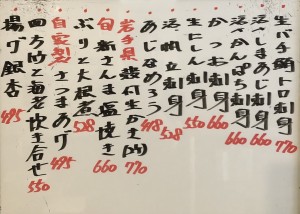 生バチ鮪トロ刺身 770
活〆しまあじ刺身 660
活〆かんぱち刺身 660
かつお刺身 660
生にしん刺身 550
活〆帆立刺身 528
あじなめろう 418
岩手県 殻付生かき(1ヶ) 770
旬 新さんま塩焼き 660
ぶりと大根煮 528
自家製 さつまあげ 495
四方竹と海老炊き合せ 550
揚げ銀杏 495